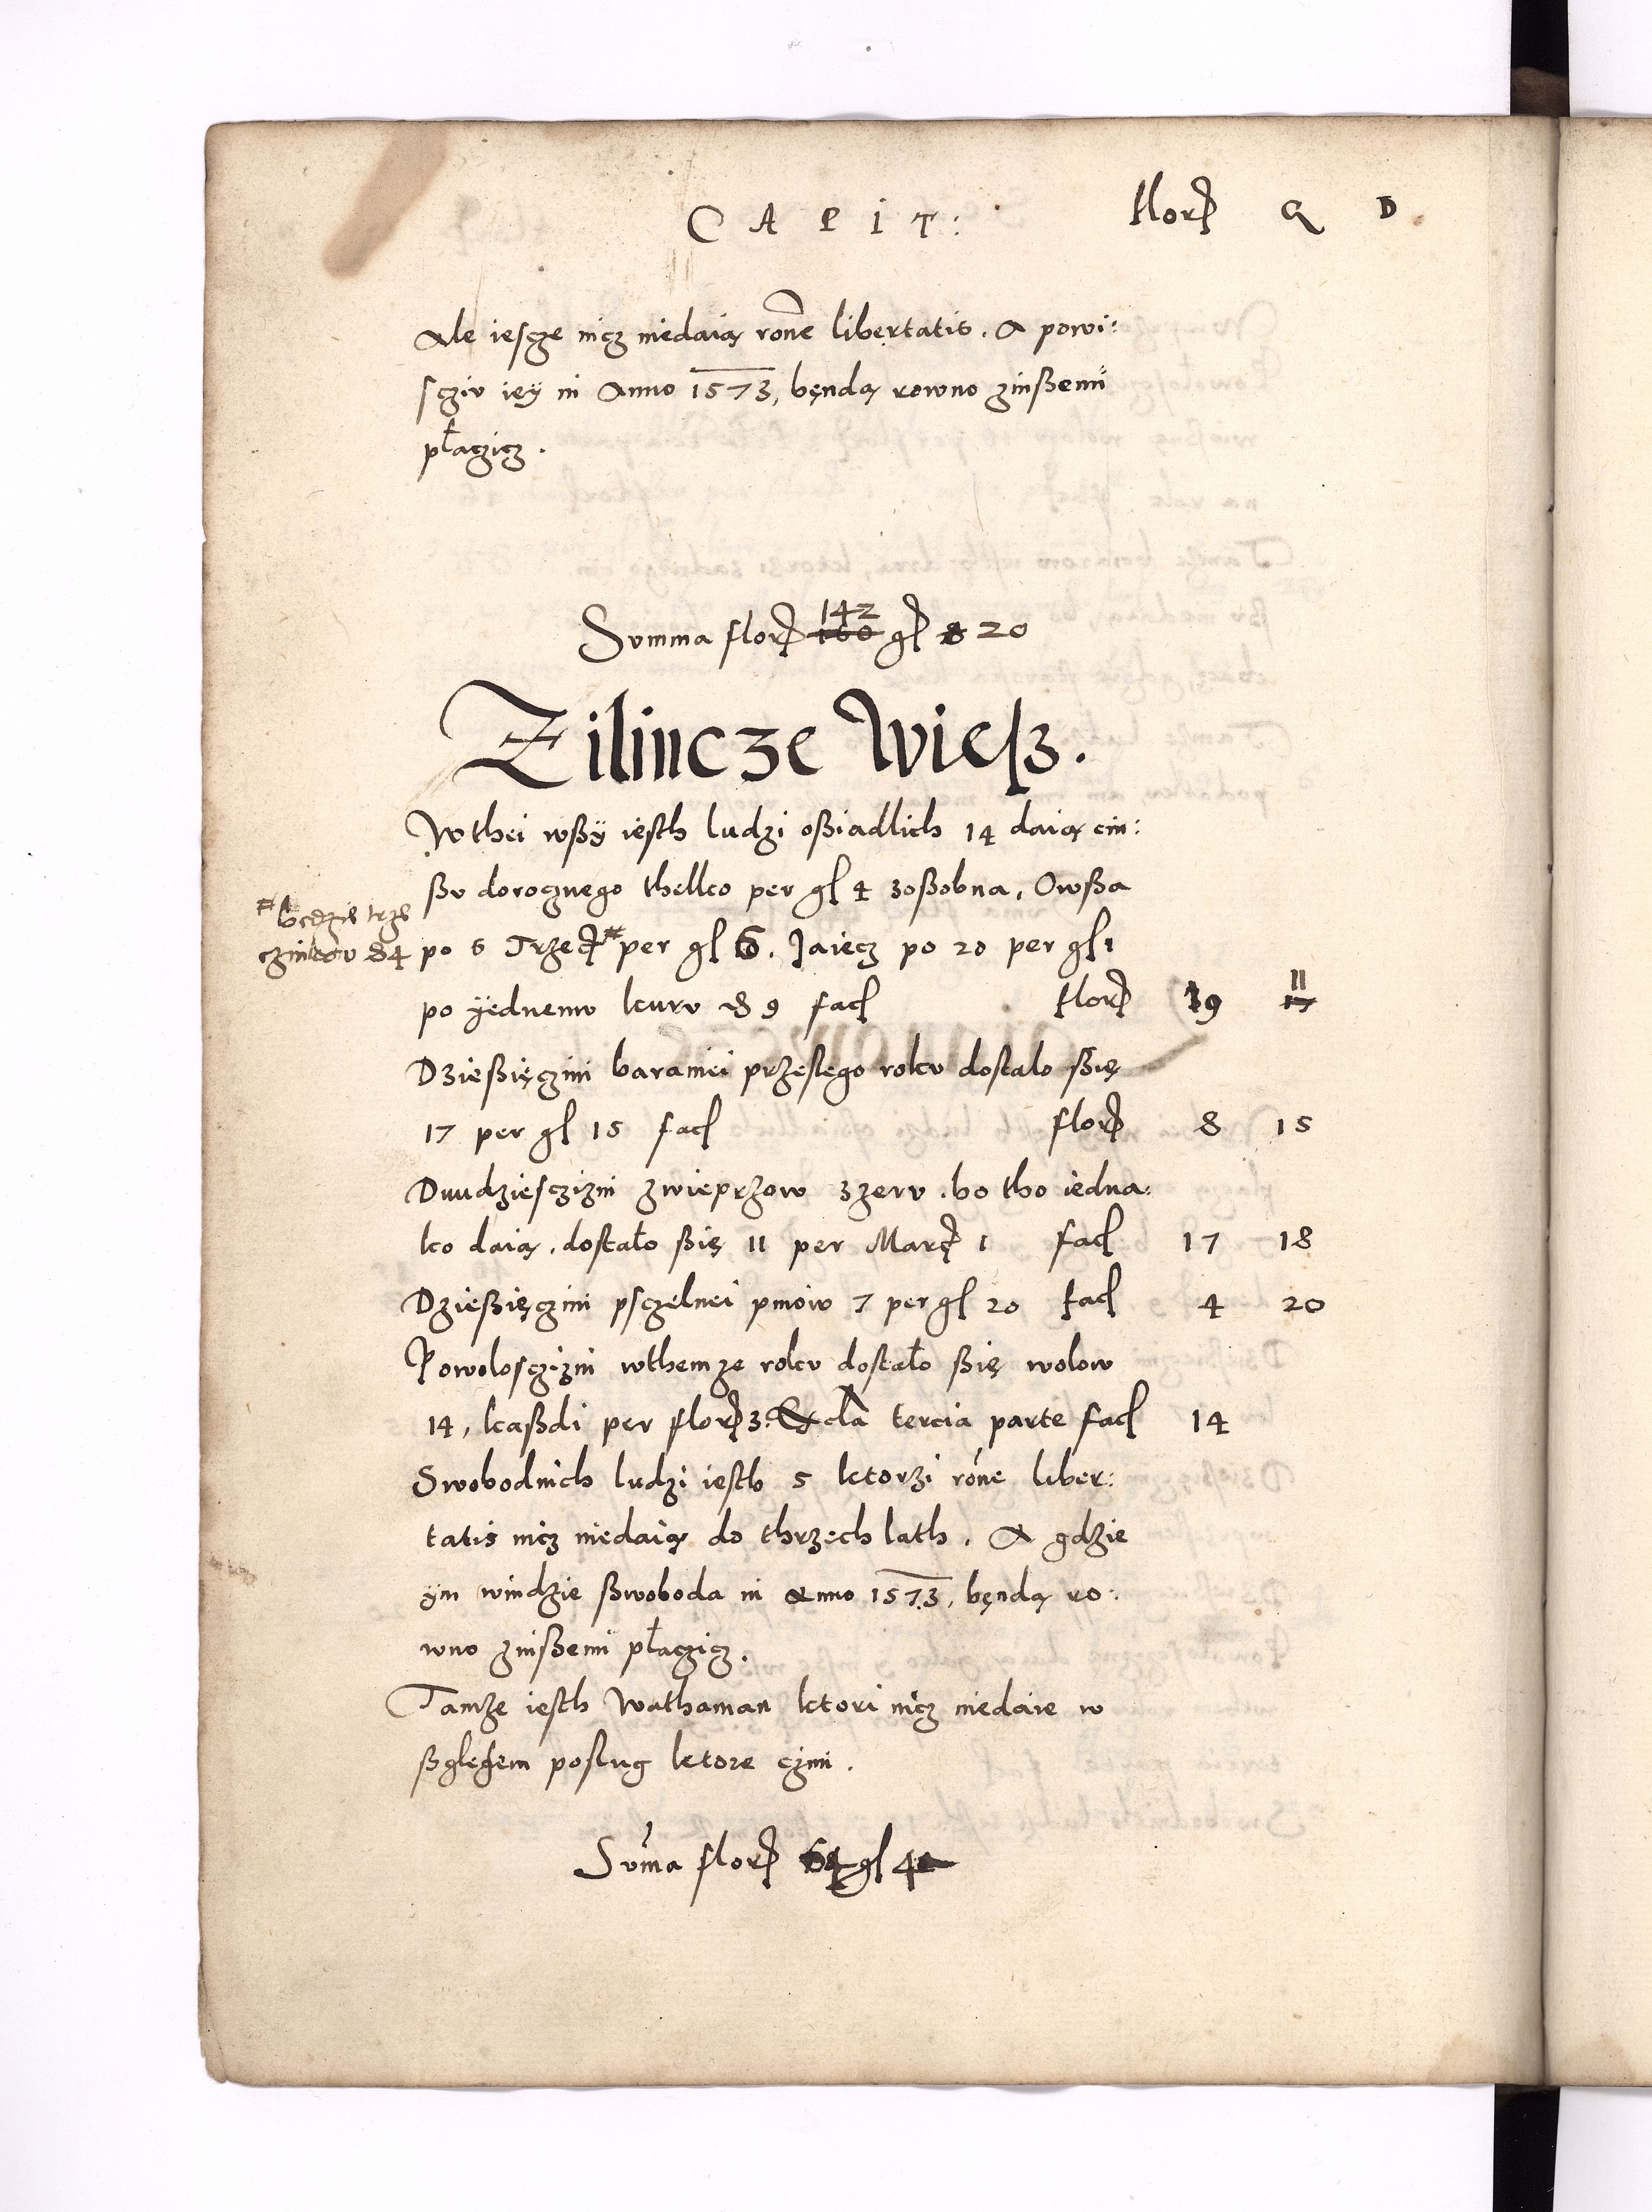 CAPIT: flor G D
Ale iescze nicz niedaią rone libertatis. A powi:
scziu iey in Anno 1573, bęndą rowno zinßemi
płaczicz.
Summa flor 142 160 gl 8 20
Zilincze Wiesz.
Wthei wßÿ iesth ludzi oßiadlich 14 daią cin:
ßu dorocznego thelko per gl 4 zoßobna, Owßa
# będzie trze
cznikow 84
po 6 Trzecz # per gl 6. Jaiecz po 20 per gl 1
po ÿednemu kuru d 9 facl flor 19 11 17
Dzießięczini baraniei przeslego roku dostalo ßię
17 per gl 15 facl flor 8 15
Dwudziesczizni zwieprzow zzeru. bo tho iedna:
ko daią. dostało ßię 11 per Marc 1 facl 17 18
Dzießięczini psczelnei pniow 7 per gl 20 facl 4 20
Powolosczizni wthemze roku dostało ßię wolow
14, kaßdi per flor 3. tercia parte facl 14
Swobodnich ludzi iesth 5 ktorzi rone liber:
tatis nicz niedaią do thrzech lath. A gdzie
ÿm windzie ßwoboda in Anno 1573, bęndą ro:
wno zinßemi płaczicz.
Tamze iesth Wathaman ktori nicz niedaie w
ßględem poslug ktore czini.
Suma flor 64 gl 4